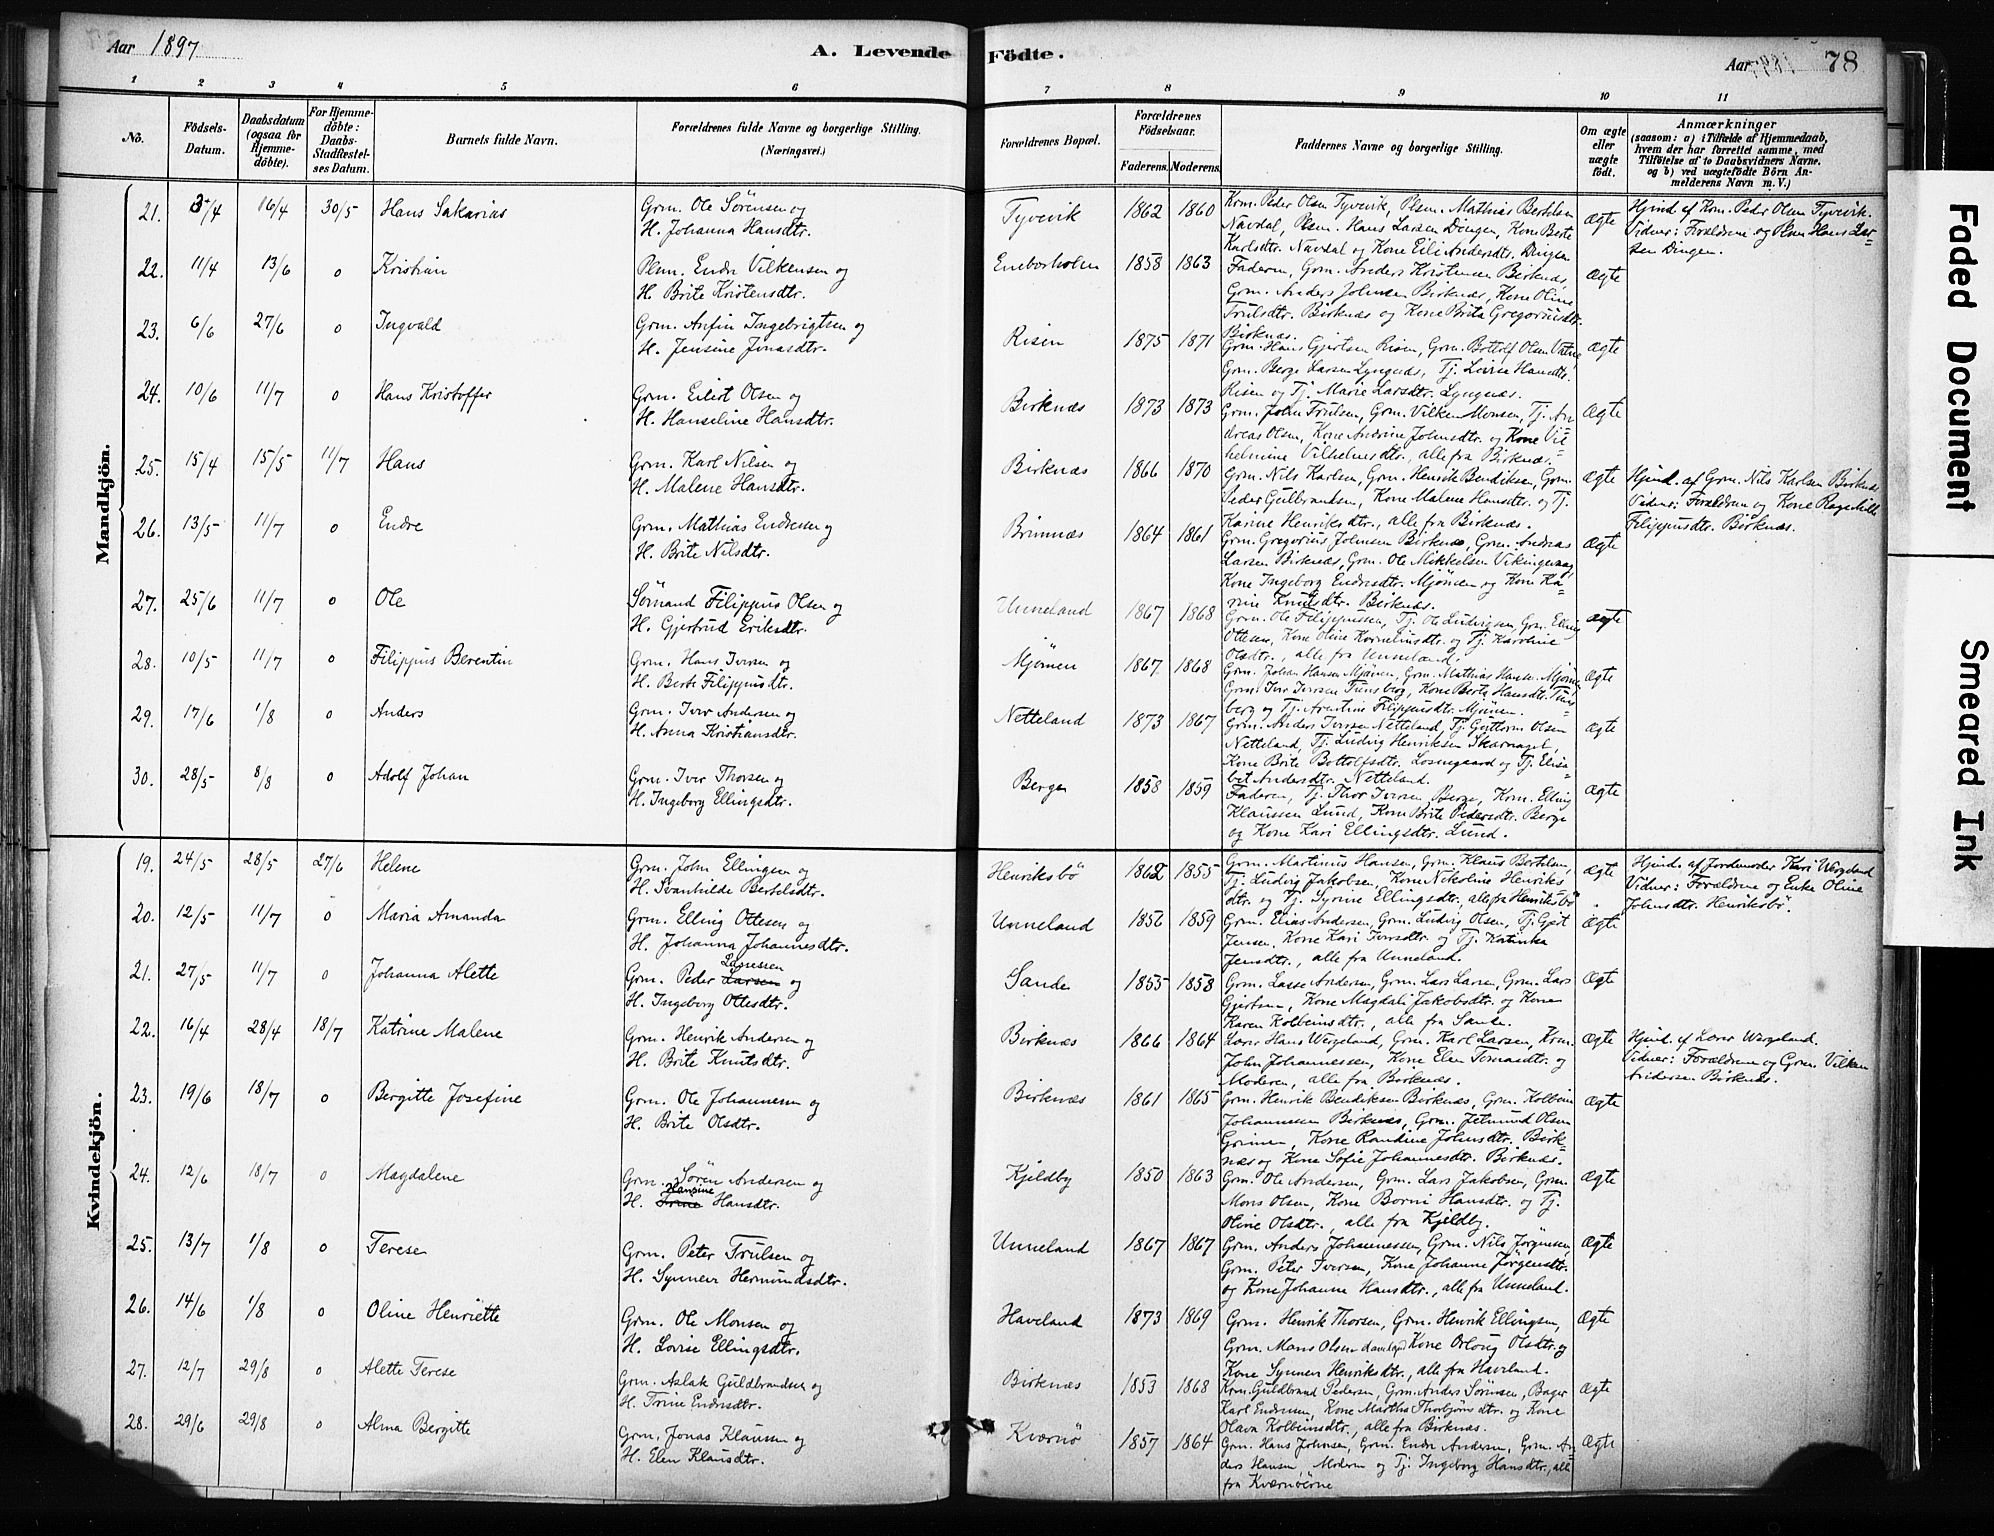 Aar 1897
A. Levende Födte.
Aar 78
1 2 3 4 5 6 7 8 9 10 11
No.
Födsels-Datum.
Daabsdatum (ogsaa for Hjemmedöbte).
For Hjemmedöbte: Daabs-Stadfæstelses Datum.
Barnets fulde Navn.
Forældrenes fulde Navne og borgerlige Stilling. (Næringsvei.)
Forældrenes Bopæl.
Forældrenes Födselsaar.
Faderens. Moderens.
Faddernes Navne og borgerlige Stilling.
Om ægte eller uægte födt.
Anmærkninger
(saasom: a) i Tilfælde af Hjemmedaab, hvem der har forrettet samme, med Tilföielse af to Daabsvidners Navne. og b) ved uægtefödte Börn Anmelderens Navn m. V.)
Mandkjön.
21. 3/4 16/4 30/5 Hans Sakarias
Grm. Ole Sörensen og
H. Johanna Hansdtr.
Tyvevik 1862 1860
Krm. Peder Olsen Tyvevik, Plsm. Mathias Bertilsen
Navdal, Plsm. Hans Larsen Dingen, Kone Berte
Karlsdtr. Navdal og Kone Eili Andersdtr. Dingen
Ægte
Hjmd. af Krm. Peder Olsen Tyvevik.
Vidner: Forældrene og Plsm Hans Lar-
sen Dingen.
22. 11/4 13/6 0 Kristian
Plsm. Endre Vilkensen og
H. Brite Kristensdtr.
Enebærholm 1858 1863
Faderen, Grm. Anders Kristensen Birknæs,
Grm. Anders Johnsen Birknæs, Kone Oline
Trulsdtr. Birknæs og Kone Brita Gregoriusdtr.
Birknæs.
Ægte
23. 6/6 27/6 0 Ingvald
Grm. Anfin Ingebrigtsen og
H. Jensine Jonasdtr.
Risen 1875 1871
Grm. Hans Gjertsen Risen, Grm. Bottolf Olsen Vatne
Grm. Berge Larsen Lyngnæs, Tj. Lovise Hansdtr.
Risen og Tj. Marie Larsdtr. Lyngnæs.
Ægte
24. 10/6 11/7 0 Hans Kristoffer
Grm. Eilert Olsen og
H. Hanseline Hansdtr.
Birknæs 1873 1873
Grm. John Trulsen, Grm. Vilken Monsen, Tj. An
dreas Olsen, Kone Andrine Johnsdtr. og Kone Vil-
helmine Vilhelmsdtr., alle fra Birknæs.
Ægte
25. 15/4 15/5 11/7 Hans
Grm. Karl Nilsen og
H. Malene Hansdtr.
Birknæs 1866 1870
Grm. Nils Karlsen, Grm. Henrik Bendiksen, Grm.
Peder Gulbrandsen, Kone Malene Hansdtr. og Tj.
Karine Henriksdtr., alle fra Birknæs.
Ægte
Hjmd. af Grm. Nils Karlsen Birknæs
Vidner: Forældrene og Kone Ragnhilde
Filippusdtr. Birknæs.
26. 13/5 11/7 0 Endre
Grm. Mathias Endresen og
H. Brite Nilsdtr.
Brimnæs 1864 1861
Grm. Gregorius Johnsen Birknæs, Grm. Andreas
Larsen Birknæs, Grm. Ole Mikkelsen Vikingevaag,
Kone Ingeborg Endresdtr. Mjømen og Kone Ka-
rine Knutsdtr. Birknæs.
Ægte
27. 25/6 11/7 0 Ole
Sømand Filippus Olsen og
H. Gjertrud Eriksdtr.
Unneland 1867 1868
Grm. Ole Filippussen, Tj. Ole Ludvigsen, Grm. Elling
Ottesen, Kone Oline Korneliusdtr. og Tj. Karoline
Olsdtr., alle fra Unneland.
ægte
28. 10/5 11/7 0 Filippus Berentin
Grm. Hans Iversen og
H. Berte Filippusdtr.
Mjømen 1867 1868
Grm. Johan Hansen Mjømen, Grm. Mathias Hansen Mjømen
Grm. Iver Iversen Tunsberg, Kone Berta Hansdtr. Tuns-
berg og Tj. Arentine Filippusdtr. Mjømen.
Ægte
29. 17/6 1/8 0 Anders
Grm. Iver Andersen og
H. Anna Kristiansdtr.
Netteland 1873 1867
Grm. Anders Iversen Netteland, Tj. Guttorm Olsen
Netteland, Tj. Ludvig Henriksen Skarnagel,
Kone Brite Bottolfsdtr. Losnegaard og Tj. Elisa-
bet Andersdtr. Netteland.
Ægte
30. 28/5 8/8 0 Adolf Johan
Grm. Iver Thorsen og
H. Ingeborg Ellingsdtr.
Berge 1858 1859
Faderen, Tj. Thor Iversen Berge, Krm. Elling
Klaussen Lund, Kone Brite Pedersdtr. Berge
og Kone Kari Ellingsdtr. Lund.
Ægte
Kvindekjön.
19. 24/5 28/5 27/6 Helene
Grm. John Ellingsen og
H. Svanhilde Bertelsdtr.
Henriksbö 1862 1855
Grm. Martinus Hansen, Grm. Klaus Bertelsen,
Tj. Ludvig Jakobsen, Kone Nikoline Henriks
dtr. og Tj. Syrine Ellingsdtr., alle fra Henriksbö
Ægte
Hjmd. af Jordemoder Kari Wergeland
Vidner: Forældrene og Enke Oline
Johnsdtr. Henriksbö.
20. 12/5 11/7 0 Maria Amanda
Grm. Elling Ottesen og
H. Johanna Johannesdtr.
Unneland 1856 1859
Grm. Elias Andersen, Grm. Ludvig Olsen, Tj. Gjert
Jensen, Kone Kari Iversdtr. og Tj. Katinka
Jensdtr., alle fra Unneland.
Ægte
21. 27/5 11/7 0 Johanna Alette
Lassesen
Grm. Peder Larsen og
H. Ingeborg Ottesdtr.
Sande 1855 1858
Grm. Lasse Andersen, Grm. Lars Larsen, Grm. Lars
Gjertsen, Kone Magdali Jakobsdtr. og Kone
Karen Kolbeinsdtr., alle fra Sande.
Ægte
22. 16/4 28/4 18/7 Katrine Malene
Grm. Henrik Andersen og
H. Brite Knutsdtr.
Birknæs 1866 1864
Lærer Hans Wergeland, Grm. Karl Larsen, Krm.
John Johannessen, Kone Elen Tomasdtr. og
Moderen, alle fra Birknæs.
Ægte
Hjmd. af Lærer Wergeland.
Vidner: Forældrene og Grm. Vilken
Andersen Birknæs.
23. 19/6 18/7 0 Bergitte Josefine
Grm. Ole Johannesen og
H. Brite Olsdtr.
Birknæs 1861 1865
Grm. Henrik Bendiksen Birknæs, Grm. Kolbein
Johannessen Birknæs, Grm. Jetmund Olsen
Grimen, Kone Randine Johnsdtr. Birk-
næs og Kone Sofie Johannesdtr. Birknæs.
Ægte
24. 12/6 18/7 0 Magdalene
Grm. Sören Andersen og
Hansine
H. Trine Hansdtr.
Kjeldby 1850 1863
Grm. Ole Andersen, Grm. Lars Jakobsen, Grm.
Mons Olsen, Kone Borni Hansdtr. og Tj.
Oline Olsdtr., alle fra Kjeldby.
Ægte
25. 13/7 1/8 0 Terese
Grm. Peter Trulsen og
H. Synneve Hermundsdtr.
Unneland 1867 1867
Grm. Anders Johannessen, Grm. Nils Jørgensen,
Grm. Peter Iversen, Kone Johanne Jørgensdtr.
og Kone Johanne Hansdtr., alle fra Unneland.
Ægte
26. 14/6 1/8 0 Oline Henriette
Grm. Ole Monsen og
H. Lovise Ellingsdtr.
Haveland 1873 1869
Grm. Henrik Thorsen, Grm. Henrik Ellingsen,
Grm. Mons Olsen Kone Orloug Olsdtr. og
Kone Synneve Henriksdtr., alle fra Haveland.
Ægte
27. 12/7 29/8 0 Alette Terese
Grm. Aslak Guldbrandsen og
H. Trine Endresdtr.
Birknæs 1853 1868
Krm. Guldbrand Pedersen, Grm. Anders Sørensen, Bager
Karl Endresen, Kone Martha Thorbjørnsdtr. og Kone
Olava Kolbeinsdtr., alle fra Birknæs.
Ægte
28. 29/6 29/8 0 Alma Bergitte
Grm. Jonas Klausen og
H. Elen Klausdtr.
Kværnö 1857 1864
Grm. Hans Johnsen, Grm. Endre Andersen, Grm. An-
ders Hansen, Moderen og Tj. Ingeborg Hansdtr., alle
fra Kværnöerne
Ægte
Faded Document
Smeared Ink